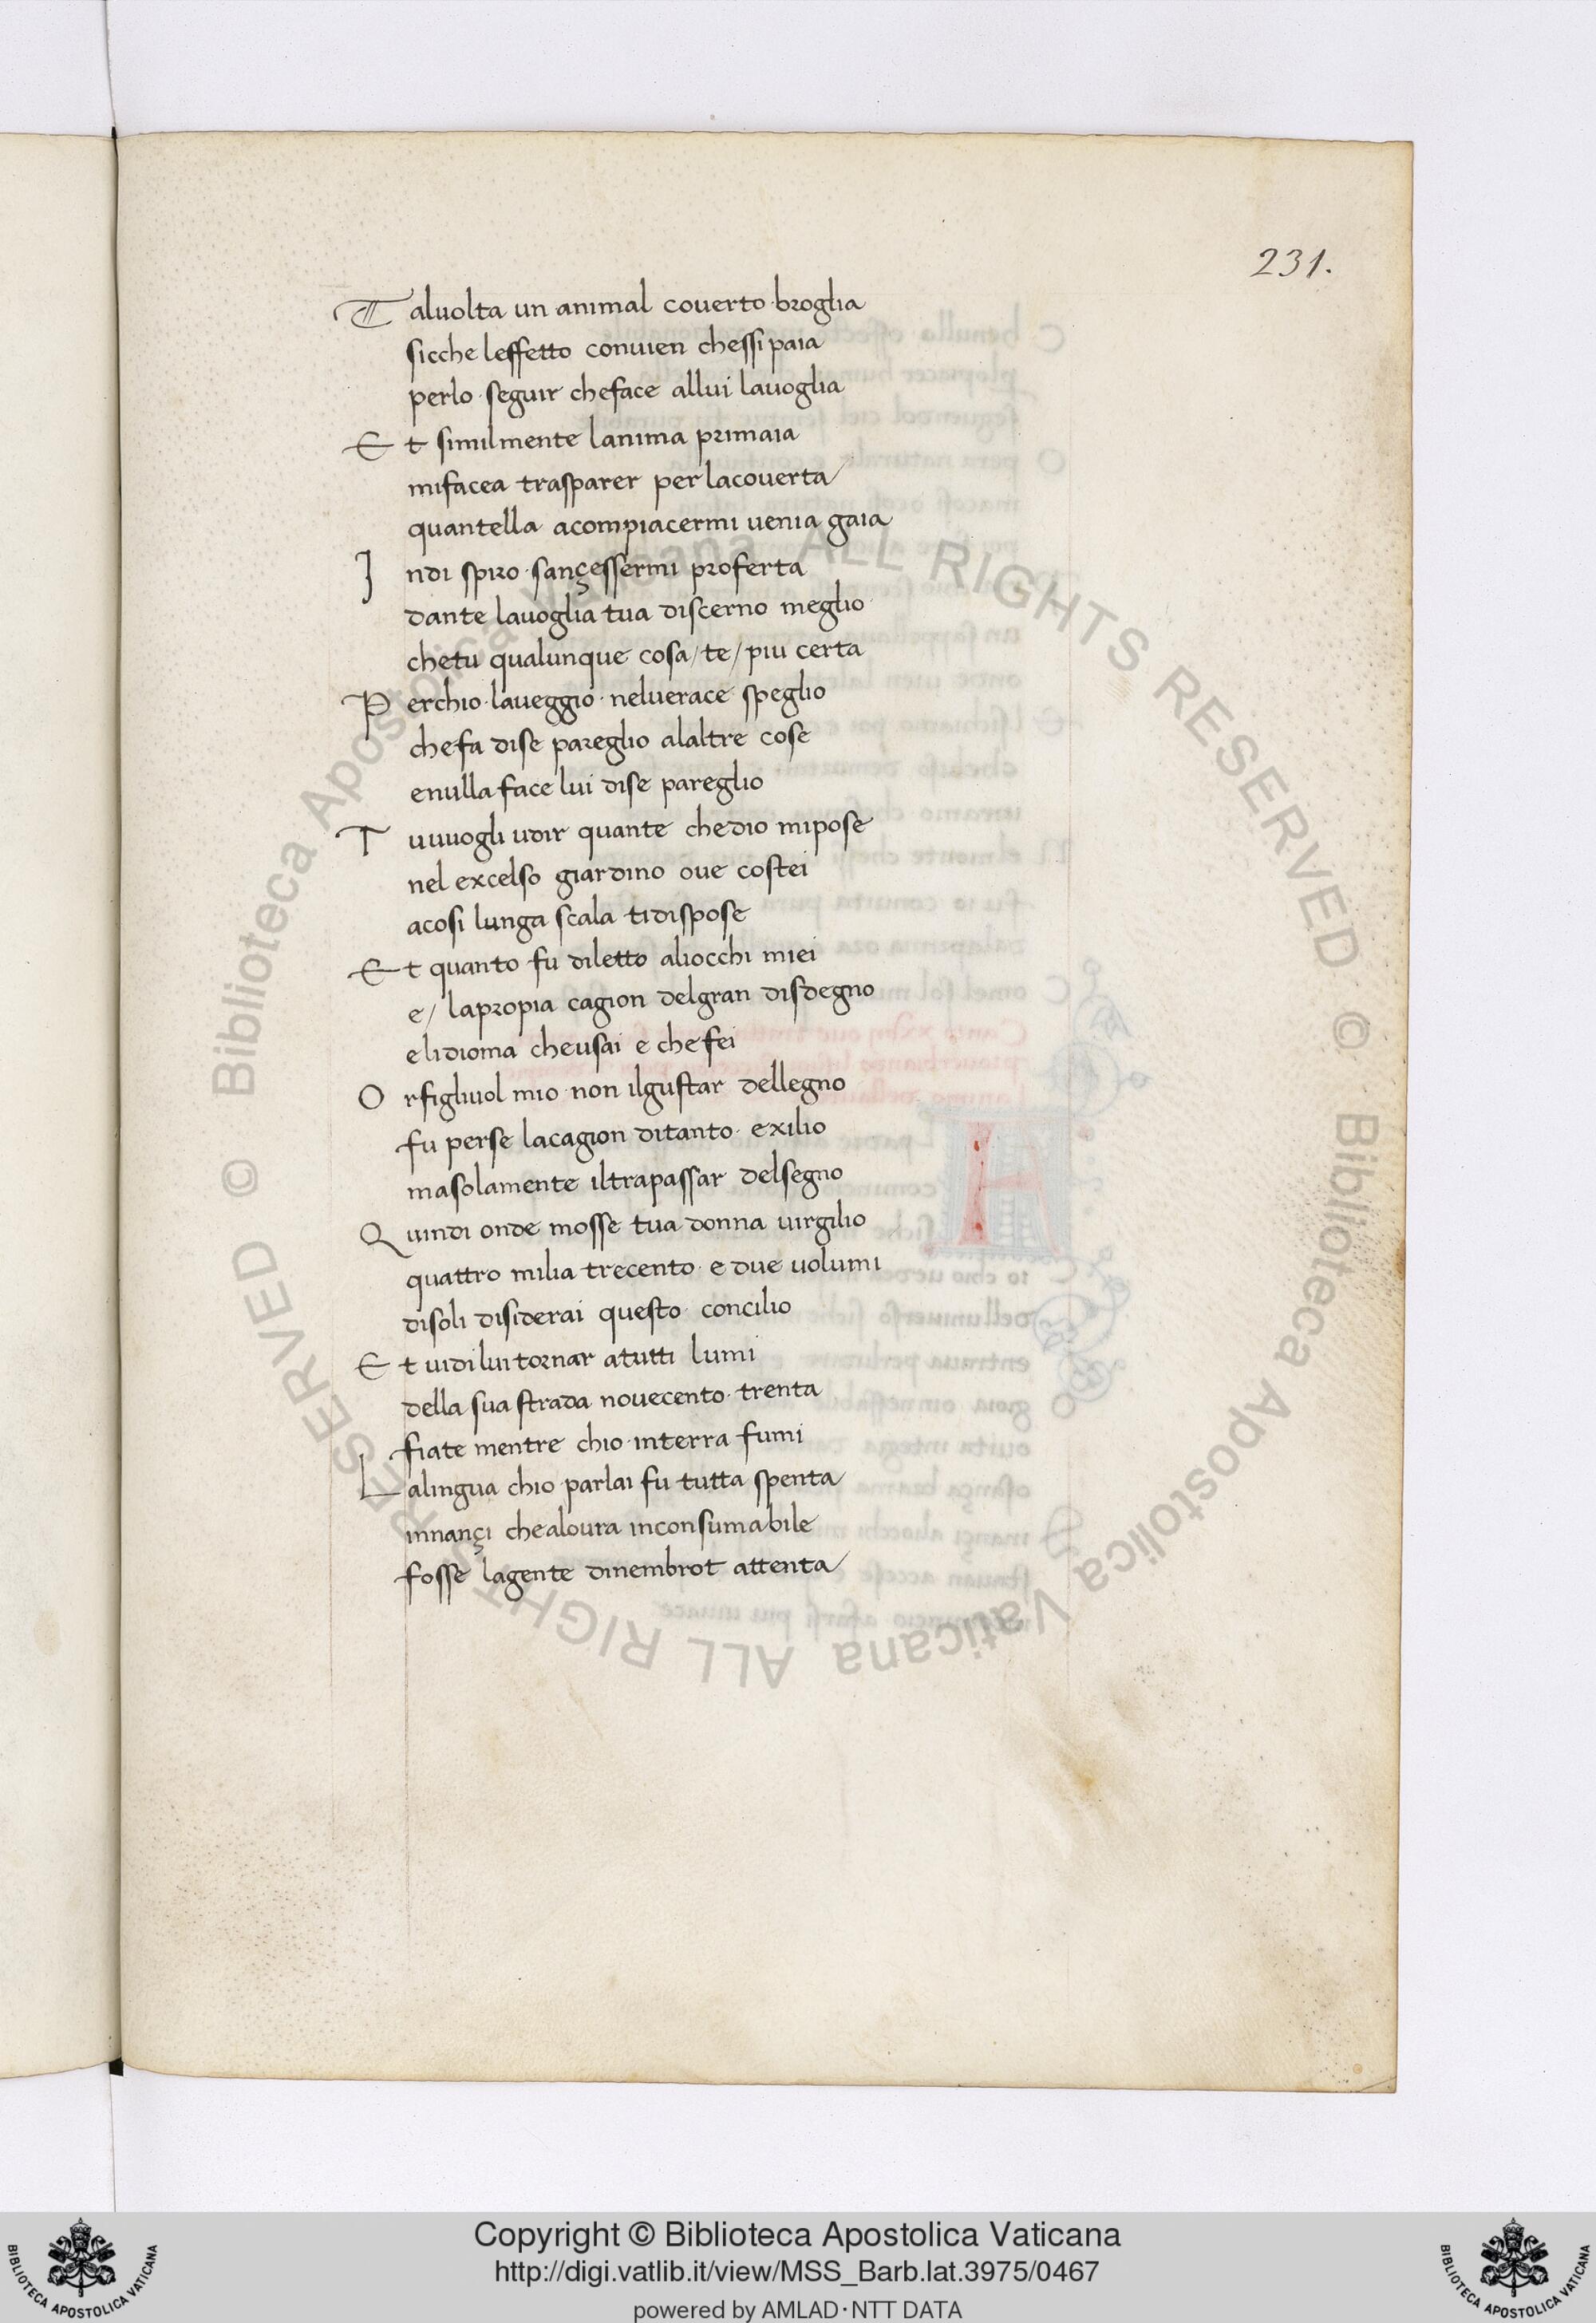 231.
Talvolta un animal coverto broglia
sicche leffetto convien chessi paia
perlo seguir cheface allui lavoglia
Et similmente lanima primaia
mifacea trasparer per lacoverta
quantella acompiacermi venia gaia
Indi spiro sançessermi proferta
dante lavoglia tua discerno meglio
chetu qualunque cosa/te/piu certa
Perchio laveggio nelverace speglio
chefa dise pareglio alaltre cose
enulla face lui dise pareglio
Tuvuogli udir quante chedio mipose
nel excelso giardino ove costei
acosi lunga scala tidispose
Et quanto fu diletto aliocchi miei
e/ lapropia cagion delgran disdegno
elidioma cheusai e chefei
Orfigliuol mio non ilgustar dellegno
fu perse lacagion ditanto exilio
masolamente iltrapassar delsegno
Quindi onde mosse tua donna virgilio
quattro milia trecento e due volumi
disoli disiderai questo concilio
Et vidi lui tornar atutti lumi
della sua strada novecento trenta
fiate mentre chio interra fumi
Lalingua chio parlai fu tutta spenta
innançi chealoura inconsumabile
fosse lagente dinembrot attenta
© Biblioteca Apostolica Vaticana ALL RIGHTS RESERVED © Biblioteca Apostolica Vaticana ALL RIGHTS RESERVED
Copyright © Biblioteca Apostolica Vaticana
http://digi.vatlib.it/view/MSS_Barb.lat.3975/0467
powered by AMLAD·NTT DATA
BIBLIOTECA APOSTOLICA VATICANA
BIBLIOTECA APOSTOLICA VATICANA